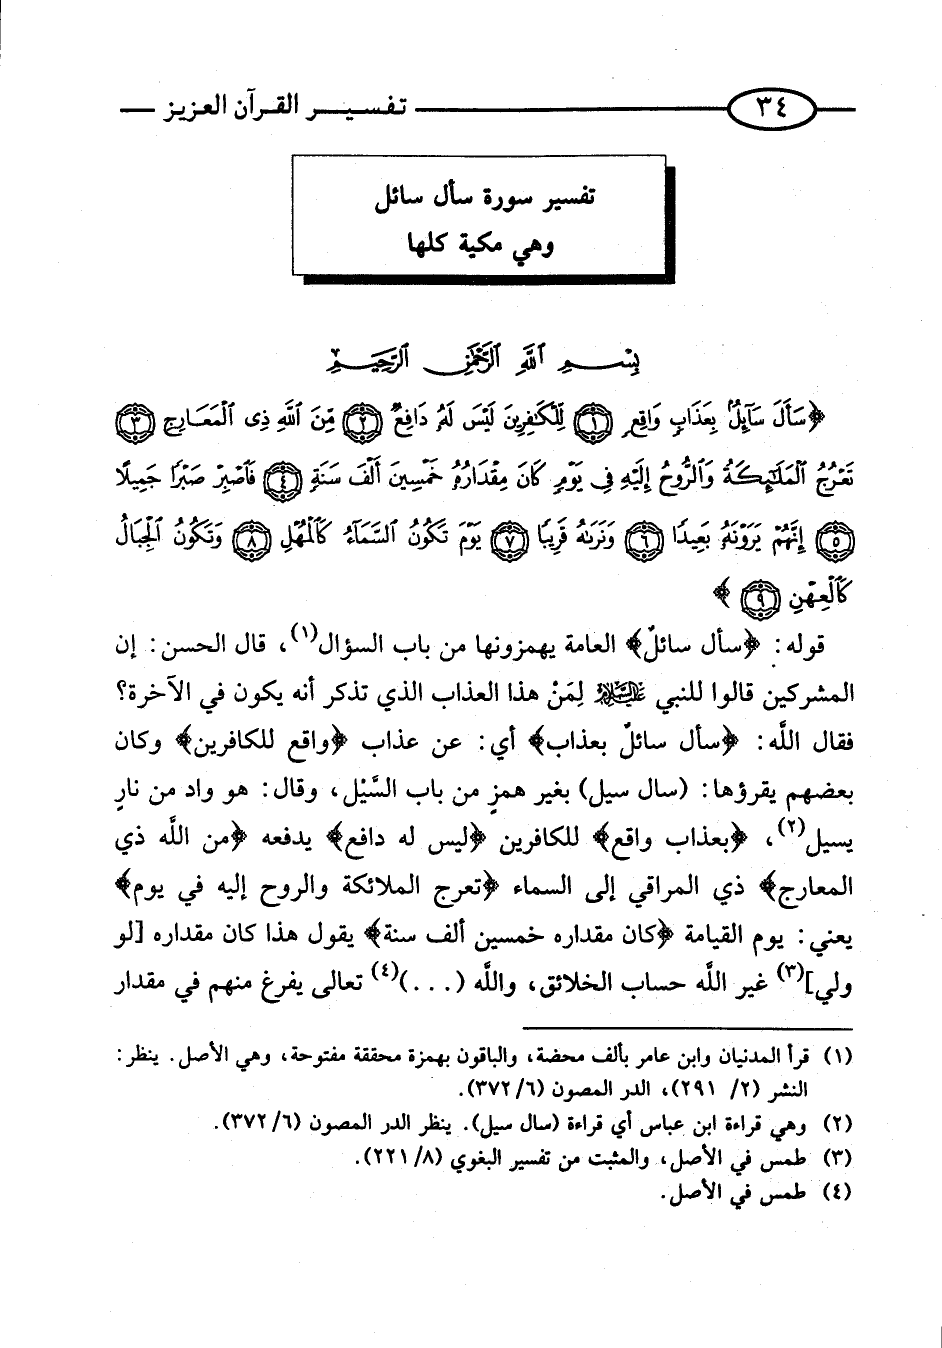 ٣٤ تفسير القرآن العزيز
تفسير سورة سأل سائل
وهي مكية كلها
بِسْمِ ٱللَّهِ ٱلرَّحْمَٰنِ ٱلرَّحِيمِ
﴿سَأَلَ سَآئِلٌۢ بِعَذَابٖ وَاقِعٖ ١ لِّلۡكَٰفِرِينَ لَيۡسَ لَهُۥ دَافِعٞ ٢ مِّنَ ٱللَّهِ ذِي ٱلۡمَعَارِجِ ٣
تَعۡرُجُ ٱلۡمَلَٰٓئِكَةُ وَٱلرُّوحُ إِلَيۡهِ فِي يَوۡمٖ كَانَ مِقۡدَارُهُۥ خَمۡسِينَ أَلۡفَ سَنَةٖ ٤ فَٱصۡبِرۡ صَبۡرٗا جَمِيلًا
٥ إِنَّهُمۡ يَرَوۡنَهُۥ بَعِيدٗا ٦ وَنَرَىٰهُ قَرِيبٗا ٧ يَوۡمَ تَكُونُ ٱلسَّمَآءُ كَٱلۡمُهۡلِ ٨ وَتَكُونُ ٱلۡجِبَالُ
كَٱلۡعِهۡنِ ٩﴾
قوله: ﴿سأل سائلٌ﴾ العامة يهمزونها من باب السؤال(١)، قال الحسن: إن
المشركين قالوا للنبي عليه السلام لِمَنْ هذا العذاب الذي تذكر أنه يكون في الآخرة؟
فقال اللَّه: ﴿سأل سائلٌ بعذاب﴾ أي: عن عذاب ﴿واقع للكافرين﴾ وكان
بعضهم يقرؤها: (سال سيل) بغير همزٍ من باب السَّيْل، وقال: هو واد من نارٍ
يسيل(٢)، ﴿بعذاب واقع﴾ للكافرين ﴿ليس له دافع﴾ يدفعه ﴿من اللَّه ذي
المعارج﴾ ذي المراقي إلى السماء ﴿تعرج الملائكة والروح إليه في يوم﴾
يعني: يوم القيامة ﴿كان مقداره خمسين ألف سنة﴾ يقول هذا كان مقداره [لو
ولي](٣) غير اللَّه حساب الخلائق، واللَّه (...)(٤) تعالى يفرغ منهم في مقدار
(١) قرأ المدنيان وابن عامر بألف محضة، والباقون بهمزة محققة مفتوحة، وهي الأصل. ينظر:
النشر (٢/ ٢٩١)، الدر المصون (٦/ ٣٧٢).
(٢) وهي قراءة ابن عباس أي قراءة (سال سيل). ينظر الدر المصون (٦/ ٣٧٢).
(٣) طمس في الأصل، والمثبت من تفسير البغوي (٨/ ٢٢١).
(٤) طمس في الأصل.